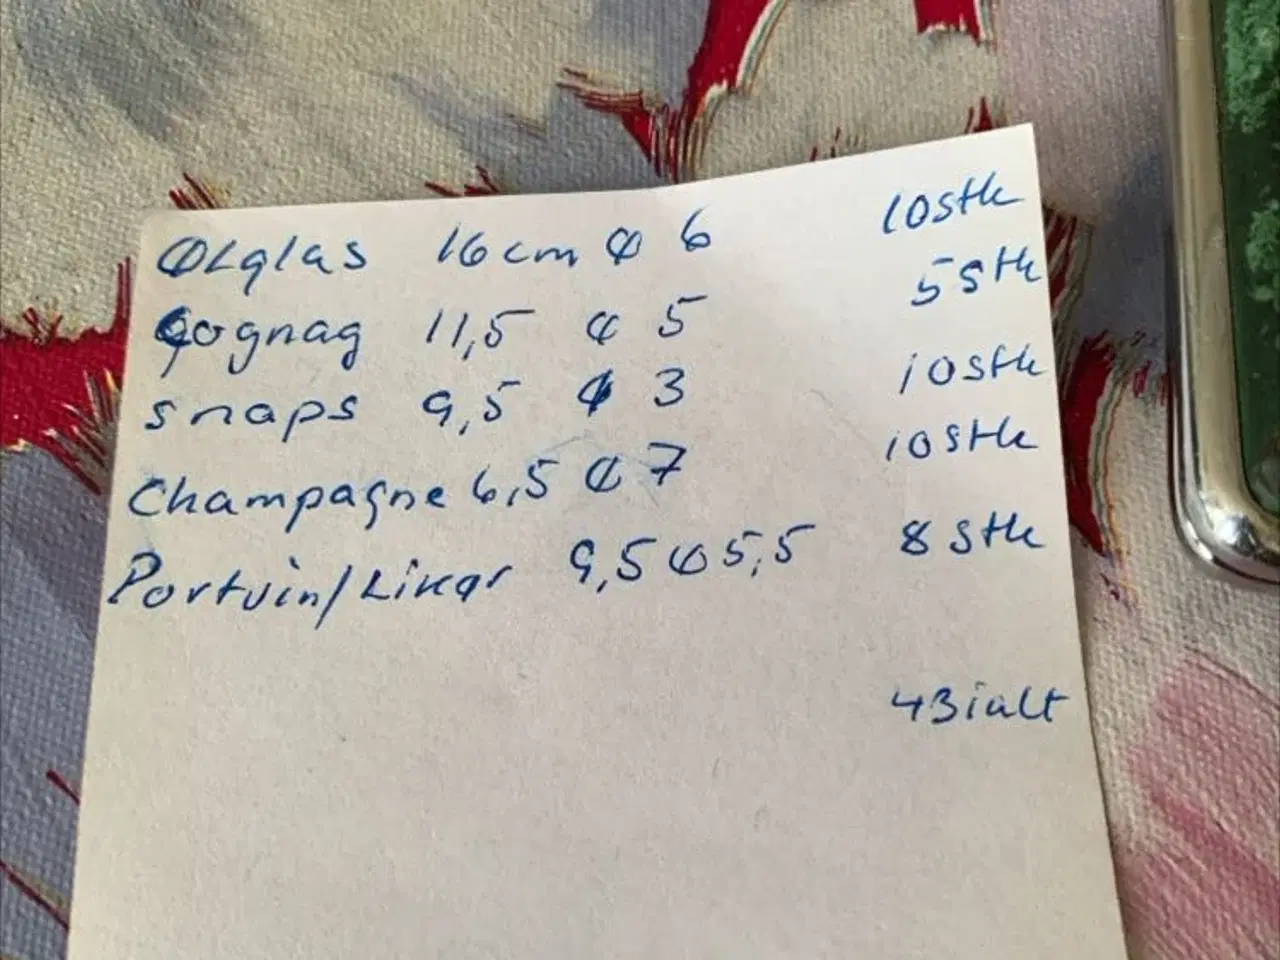 Ølglas 16 cm Ø 6 10 stk
Cognag 11,5 Ø 5 5 stk
snaps 9,5 Ø 3 10 stk
Champagne 6,5 Ø 7 10 stk
Portvin/Likør 9,5 Ø 5,5 8 stk
43 ialt